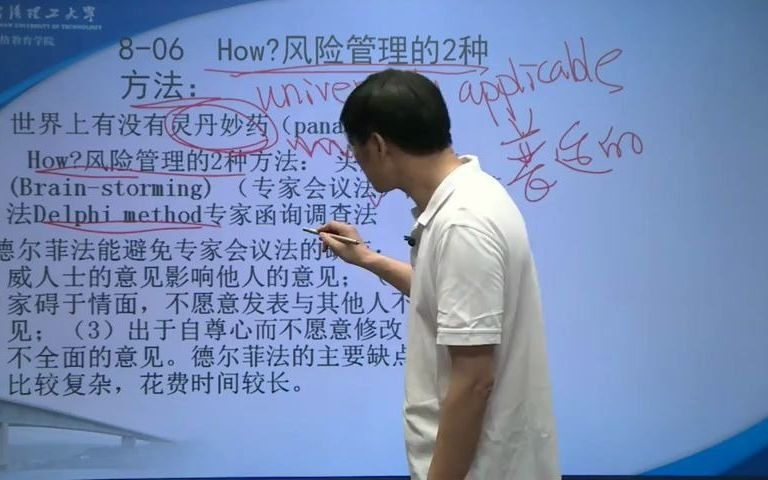 理工大学
UNIVERSITY OF TECHNOLOGY
教育学院
8-06 How?风险管理的2种
方法：
univer applicable
世界上有没有灵丹妙药（pana
普适的
How?风险管理的2种方法：
(Brain-storming)（专家会议法
法Delphi method专家函询调查法
德尔菲法能避免专家会议法的
威人士的意见影响他人的意见；（
家碍于情面，不愿意发表与其他人不
见；（3）出于自尊心而不愿意修改
不全面的意见。德尔菲法的主要缺点
比较复杂，花费时间较长。